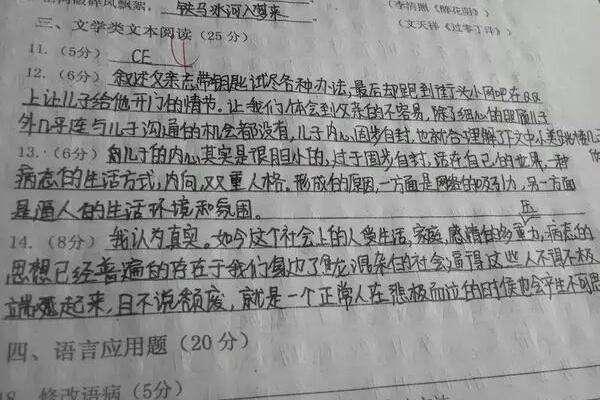 铁马冰河入梦来
(李清照《醉花阴》)
(文天祥《过零丁洋》)
三、文学类文本阅读(25分)
11.(5分) CE
12.(6分) 叙述父亲忘带钥匙试尽各种办法,最后却跑到街头小网吧在QQ
上让儿子给他开门的情节。让我们体会到父亲的不容易,除了细心的照顾儿子
外几乎连与儿子沟通的机会都没有,儿子内心固步自封,也就合理解了下文中
13.(6分) 儿子的内心其实是很胆小的,过于固步自封,活在自己的世界,一种
病态的生活方式,内向,双重人格。形成的原因,一方面是网络的吸引力,另一方面
是逼人的生活环境和氛围。
14.(8分) 我认为真实。如今这个社会上的人受生活,家庭,感情的多重压力,病态的
思想已经普遍的存在于我们身边了鱼龙混杂的社会逼得这些人不得不极
端起来,且不说颓废,就是一个正常人在悲极而泣的时候也会产生不可思
四、语言应用题(20分)
修改语病(5分)